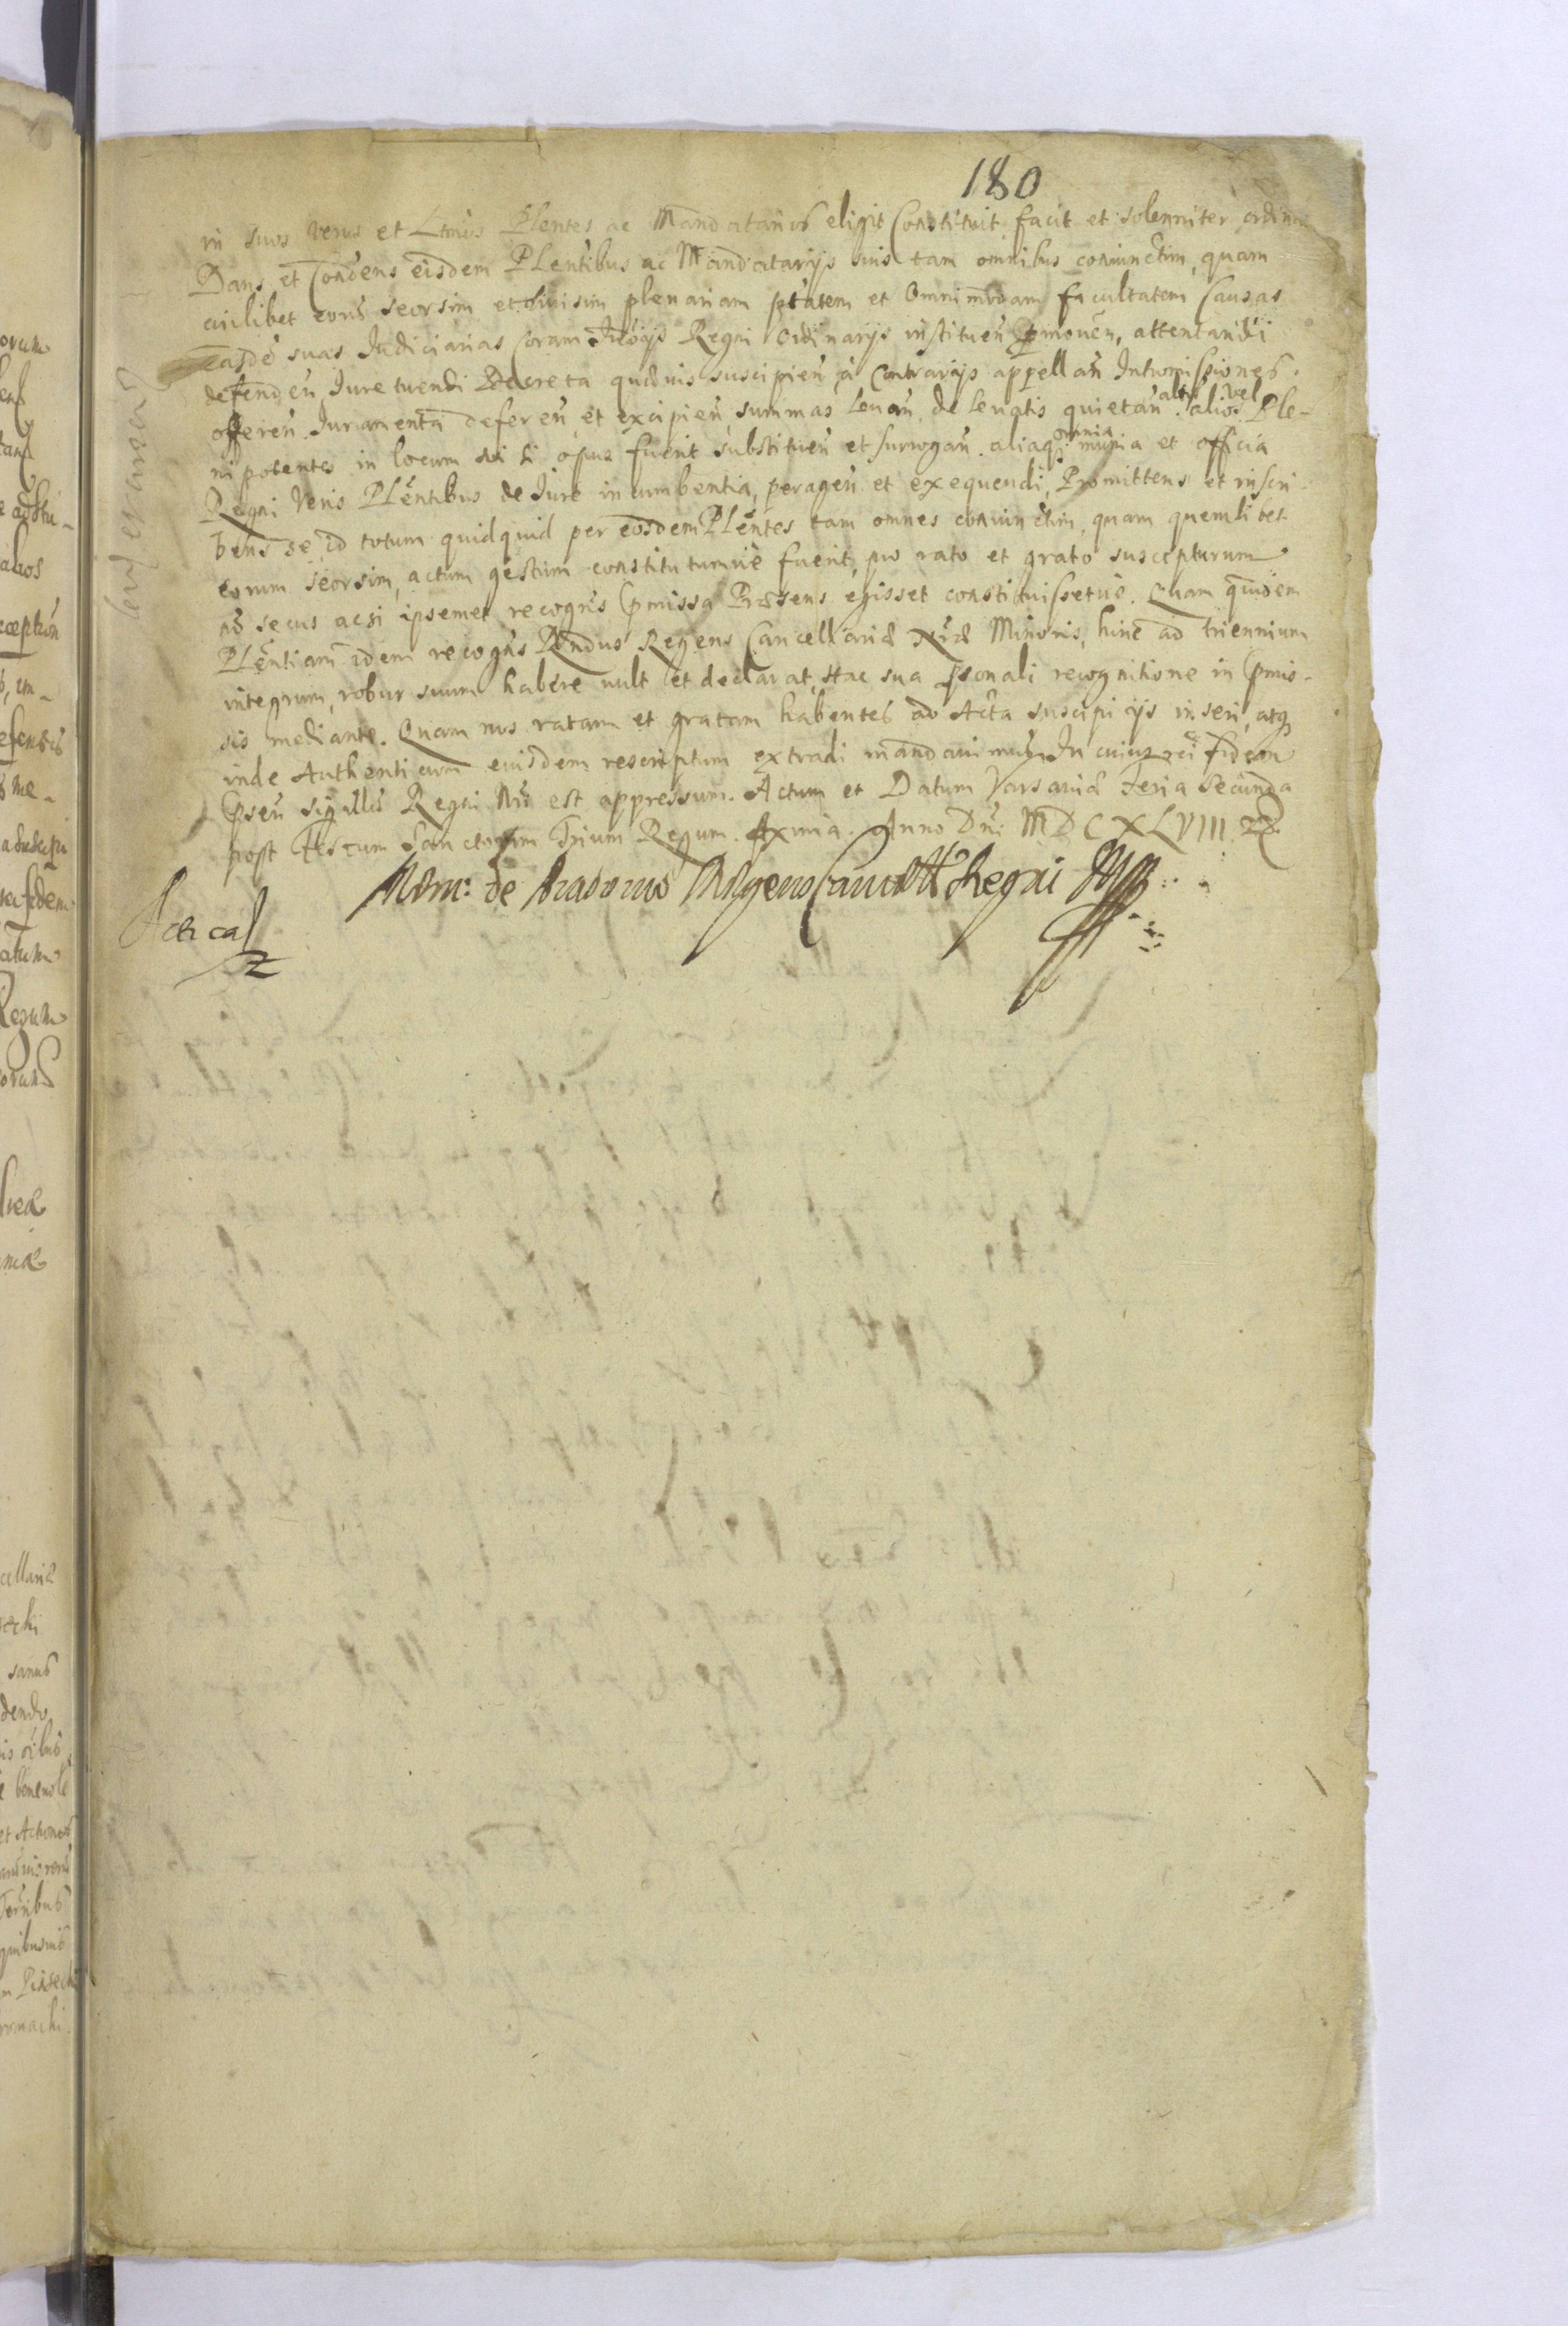 180
in suos veros et Ltmos Plentes ac Mandatarios eligit Constituit facit et solenniter ordinat
Dans et Condens eisdem PLentibus ac Mandatarijs suis tam omnibus coniunctim, quam
cuilibet eorū seorsim et diuisim plenariam ptatem et Omnimodam facultatem Causas
easdē suas Judiciarias Coram Judicijs Regni Ordinarijs instituen̄ pmouen̄, attentandi
defenden̄ Jure tuendi Decreta quæuis suscipien̄ à Contrarijs appellan̄ Intromissiones
offeren̄ Juramenta deferen̄ et excipien̄, summas leuan̄ de leuatis quietan̄. aliū vel alios Ple-
nipotentes in locum sui si opus fuerit substituen̄ et surrogan̄. aliaq; omnia munia et officia
Regni Veris PLentibus de Jure incumbentia, peragen̄ et exequendi, Promittens et inscri-
bens se id totum quidquid per eosdem PLentes tam omnes coniunctim, quam quemlibet
eorum seorsim, actum gestum constitutumuè fuerit, pro rato et grato suscepturum
nō secus acsi ipsemet recogn̄s pmissa Præsens egisset constituissetuè. Quam quidem
PLentiam idem recogn̄s Rn̄dus Regens Cancellariæ Minoris, hinc ad triennium
integrum, robur suum habere vult et declarat, Hac sua psonali recognitione in pmis-
sis mediante. Quam nos ratam et gratam habentes ad Acta suscipi ijs inseri, atq;
inde Authenticum eiusdem rescriptum extradi mandauimus. In cuius rei fidem
pn̄s sigillū Regni Nrī est appressum. Actum et Datum Varsauiæ Feria Secunda
post Festum Sanctorum Trium Regum. Axima. Anno Dn̄i MDCXLVIII
de Regens Regni